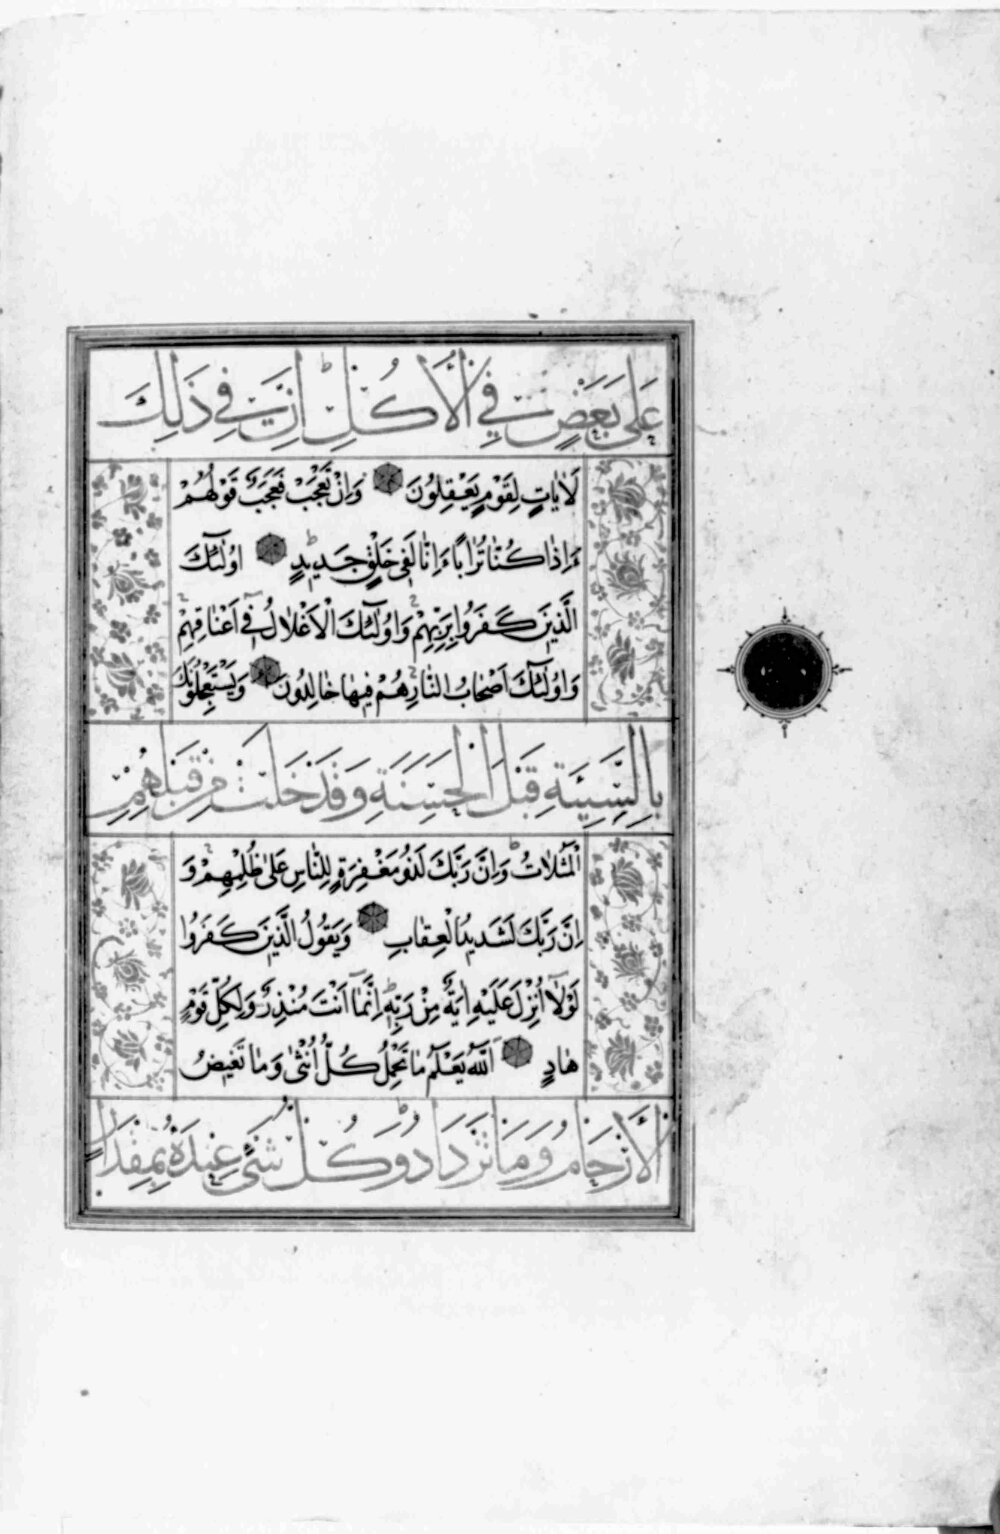 عَلَى بَعْضٍ فِي الْأُكُلِ إِنَّ فِي ذَلِكَ
لَاٰيَاتٍ لِقَوْمٍ يَعْقِلُونَ وَاِنْ تَعْجَبْ فَعَجَبٌ قَوْلُهُمْ
ءَاِذَا كُنَّا تُرَابًا ءَاِنَّا لَفِى خَلْقٍ جَدِيدٍ اُولٰٓئِكَ
الَّذِينَ كَفَرُوا بِرَبِّهِمْ وَاُولٰٓئِكَ الْاَغْلَالُ فِٓى اَعْنَاقِهِمْ
وَاُولٰٓئِكَ اَصْحَابُ النَّارِ هُمْ فِيهَا خَالِدُونَ وَيَسْتَعْجِلُونَكَ
بِالسَّيِّئَةِ قَبْلَ الْحَسَنَةِ وَقَدْ خَلَتْ مِنْ قَبْلِهِمُ
الْمَثُلَاتُ وَاِنَّ رَبَّكَ لَذُو مَغْفِرَةٍ لِلنَّاسِ عَلٰى ظُلْمِهِمْ وَ
اِنَّ رَبَّكَ لَشَدِيدُ الْعِقَابِ وَيَقُولُ الَّذِينَ كَفَرُوا
لَوْلَٓا اُنْزِلَ عَلَيْهِ اٰيَةٌ مِنْ رَبِّهِ اِنَّمَٓا اَنْتَ مُنْذِرٌ وَلِكُلِّ قَوْمٍ
هَادٍ اَللّٰهُ يَعْلَمُ مَا تَحْمِلُ كُلُّ اُنْثٰى وَمَا تَغِيضُ
الْأَرْحَامُ وَمَا تَزْدَادُ وَكُلُّ شَيْءٍ عِنْدَهُ بِمِقْدَارٍ